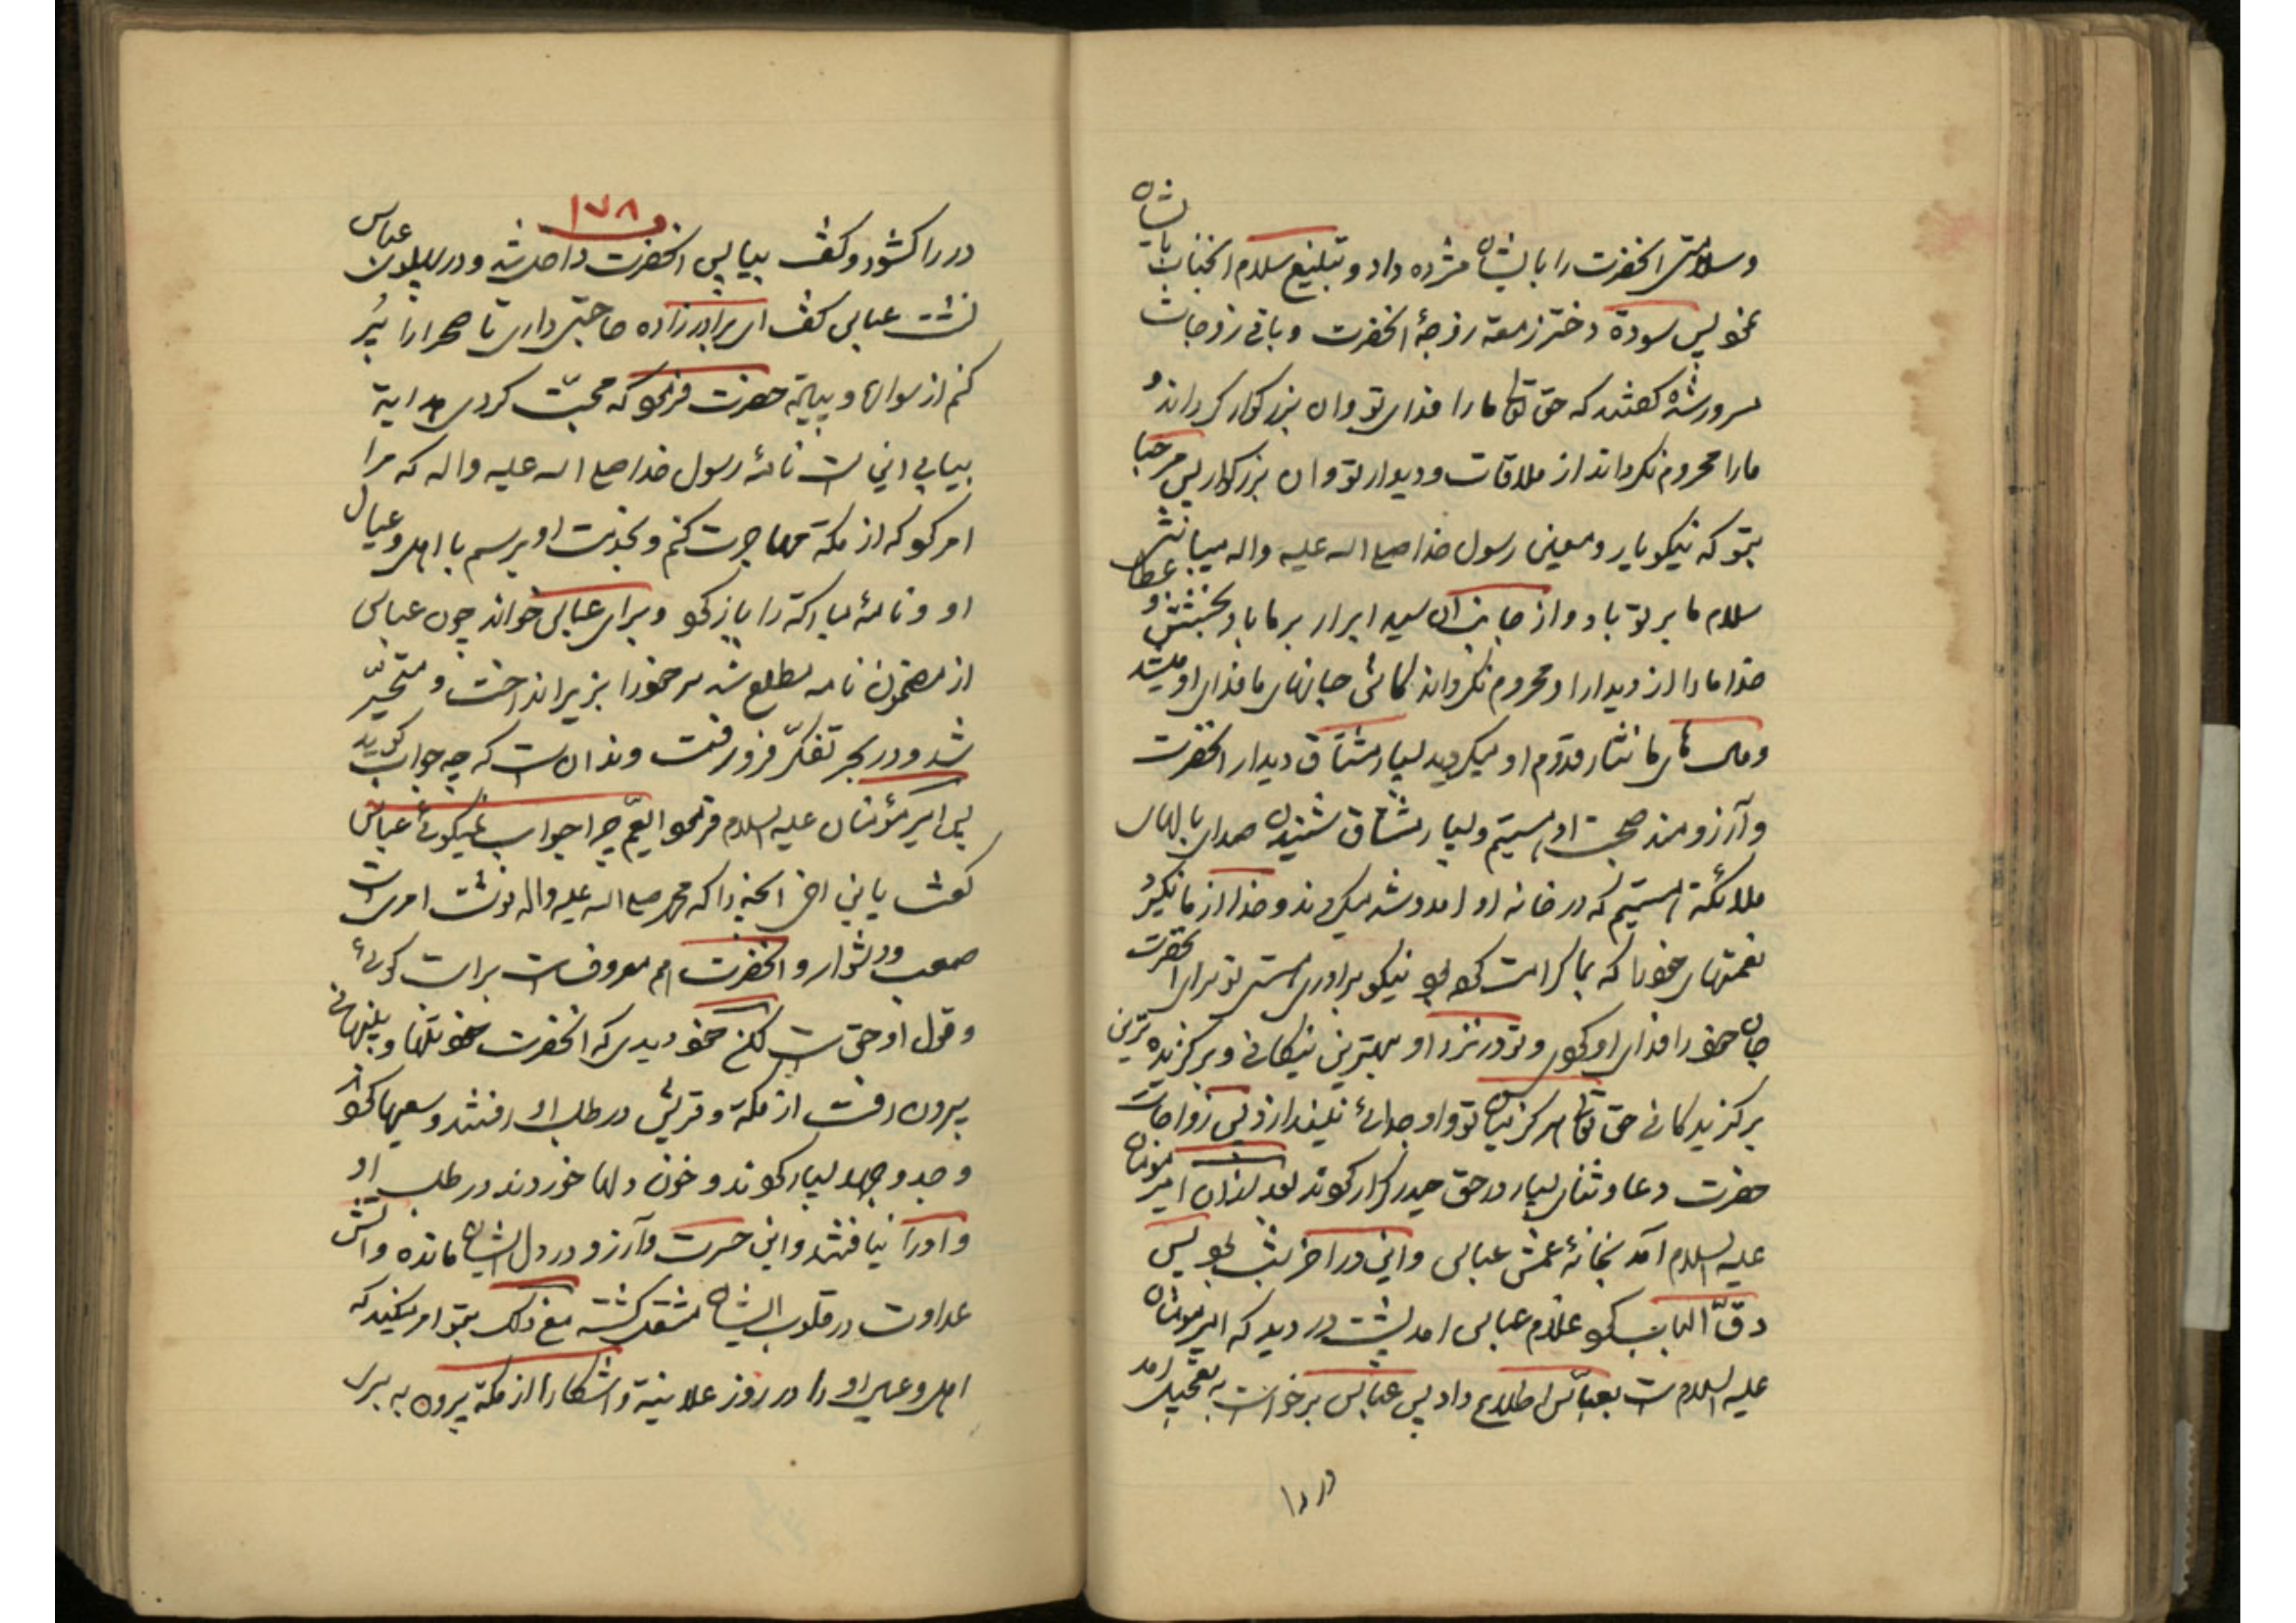 وسلامتی انحضرت را بایشان مژده داد و تبلیغ سلام انجناب بایشان
نمود پس سودة دختر زمعه زوجهٔ انحضرت و باقی زوجات
سرور شده گفتند که حق تعالی ما را فدای تو و ان بزرگوار گرداند و
ما را محروم نگرداند از ملاقات و دیدار تو و ان بزرگوار پس مرحبا
بتو که نیکو یار و معین رسول خدا صلی الله علیه واله میباشی
سلام ما بر تو باد و از جانب ان سید ابرار بر ما باد بخشش و عطا
خدا ما را از دیدار او محروم نگرداند کاش جانهای ما فدای او میشد
و ما نثار قدوم او میگردید بسیار مشتاق دیدار انحضرت
و آرزومند صحبت او هستیم و بسیار مشتاق شنیدن صدای بالهای
ملائکة هستیم که در خانه او امد و شد میکردند و خدا از ما نگیرد
نعمتهای خود را که بما کرامت کرد نیکو برادری هستی تو برای انحضرت
جان خود را فدای او کردی و تو در نزد او بهترین نیکانی و برگزیده ترین
برگزیدگانی حق تعالی هرگز میان تو و او جدائی نیندازد پس زوجات
حضرت دعا و ثنای بسیار در حق حیدر کرار کردند بعد از ان امیر مؤمنان
علیه السلام آمد بخانهٔ عمش عباس و این در اخر شب بود پس
دقّ الباب کرد غلام عباس امد پشت در دید که امیر مؤمنان
علیه السلام است بعباس اطلاع داد پس عباس برخواست به تعجیل امد
در را
۱۷۸
در را گشود و گفت بیا پس انحضرت داخل شد و در عباس
نشست عباس گفت ای برادرزاده حاجتی داری تا صحرا را پُر
کنم از سواره و پیاده حضرت فرمود که محبّت کردی هدایة
بیابی این است نامهٔ رسول خدا صلی الله علیه واله که مرا
امر کرد که از مکة مهاجرت کنم و بخدمت او برسم با اهل و عیال
او و نامهٔ مبارکه را باز کرد و برای عباس خواند چون عباس
از مضمون نامه مطلع شد سر خود را بزیر انداخت و متحیّر
شد و در بحر تفکّر فرو رفت و ندانست که چه جواب گوید
پس امیر مؤمنان علیه السلام فرمود ایعم چرا جواب نمیگوئی عباس
گفت یابن اخی انچه را که محمد صلی الله علیه واله نوشت امری است
صعب و دشوار و انحضرت هم معروف است براست گوئی
و قول او حق است لکن خود دیدی که انحضرت خود تنها و پنهانی
بیرون رفت از مکة و قریش در طلب او رفتند و سعیها کردند
و جد و جهد بسیار کردند و خون دلها خوردند در طلب او
و او را نیافتند و این حسرت و آرزو در دل ایشان مانده و اتش
عداوت در قلوب ایشان مشتعل گشته مع ذلک بتو امر میکند که
اهل و عیال او را در روز علانیة و اشکارا از مکة بیرون به بری